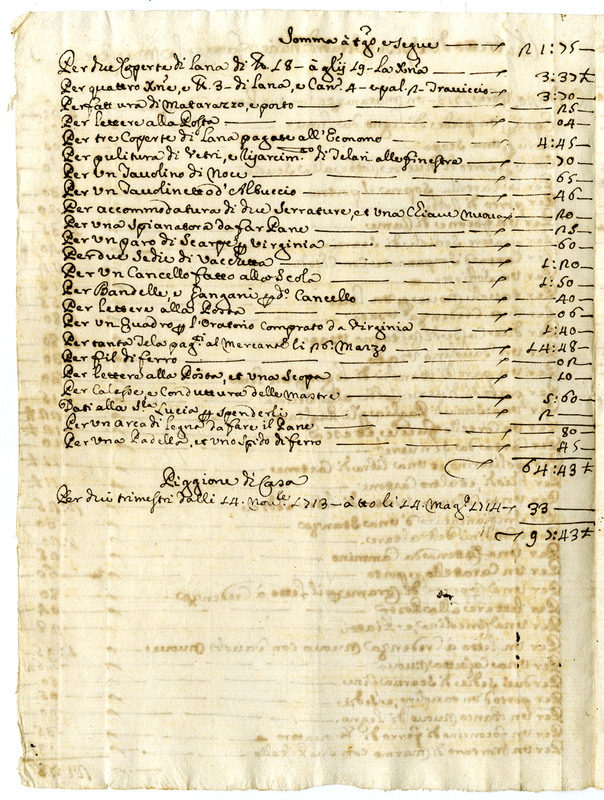 Somma à tgo, e segue — 21:75
Per due Coperte di Lana di lb 18 - à gl'ij 19 - La Xna — 3:37½
Per quattro Xne, e lb. 3 - di Lana, e Can. 4 - e pal. 2 Traviccio — 3:70
Per fattura di Matarazzo, e porto — 25
Per lettere alla Posta — 04
Per tre Coperte di Lana pagate all'Economo — 4:45
Per pulitura di Vetri, e di Telari alle finestre — 70
Per un Tavolino di Noce — 65
Per un Tavolinetto d'Albuccio — 46
Per accommodatura di due Serrature, et una Chiave Nuova — 20
Per una Spianatora da far Pane — 25
Per un paro di Scarpe p Virginia — 60
Per due Sedie di Vacchetta — 1:20
Per un Cancello fatto alla Scola — 1:50
Per Bandelle, e Gangani p do. Cancello — 40
Per lettere alla Posta — 06
Per un Quadro p l'Oratorio Comprato da Virginia — 1:40
Per tanta tela pag. al Mercante li 26. Marzo — 14:48
Per fil di ferro — 02
Per lettere alla Posta, et una Scopa — 10
Per Calesse, e Conduttura delle Mastre — 5:60
Dati alla Sra. Lucia p spenderli — 2
Per un arca di legna da fare il Pane — 80
Per una Padella, et uno Spido di ferro — 45
64:43½
Piggione di Casa
Per dui trimestri dalli 14. Nov.le 1713 - à tto li 14. Mago. 1714 — 33
97:43½